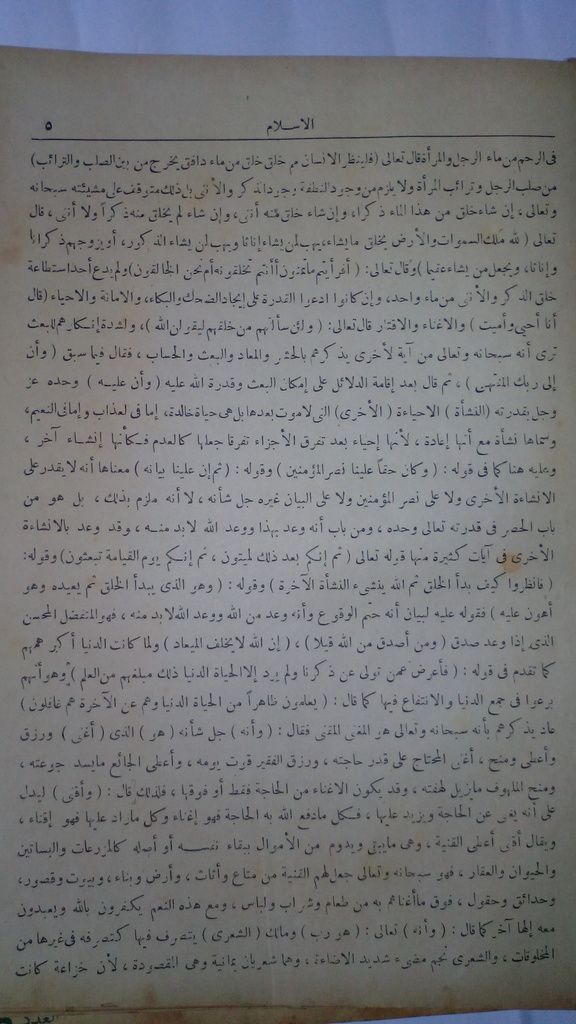 الاسلام ٥
فى الرحم من ماء الرجل والمرأة قال تعالى (فلينظر الانسان مم خلق خلق من ماء دافق يخرج من بين الصلب والترائب)
من صلب الرجل وترائب المرأة ولا يلزم من وجود النطفة وجود الذكر والأنثى بل ذلك متوقف على مشيئته سبحانه
وتعالى ، إن شاء خلق من هذا الماء ذكرا ، وإن شاء خلق منه أنثى ، وإن شاء لم يخلق منه ذكراً ولا أنثى ، قال
تعالى ( لله ملك السموات والأرض يخلق ما يشاء ، يهب لمن يشاء إناثا ويهب لمن يشاء الذكور ، أو يزوجهم ذكرانا
وإناثا ، ويجعل من يشاء عقيما ) وقال تعالى : ( أفرأيتم ما تمنون أأنتم تخلقونه أم نحن الخالقون) ولم يدع أحد استطاعة
خلق الذكر والأنثى من ماء واحد ، وإن كانوا ادعوا القدرة على إيجاد الضحك والبكاء ، والامانة والاحياء (قال
أنا أحيى وأميت ) والاغناء والاقتار قال تعالى : ( ولئن سألتهم من خلقهم ليقولن الله )، ولشدة إنكارهم للبعث
ترى أنه سبحانه وتعالى من آية لأخرى يذكرهم بالحشر والمعاد والبعث والحساب ، فقال فيما سبق ( وأن
إلى ربك المنتهى ) ، ثم قال بعد إقامة الدلائل على إمكان البعث وقدرة الله عليه ( وأن عليه ) وحده عز
وجل بقدرته (النشأة ) الاحياءة ( الأخرى) التى لا موت بعدها بل هى حياة خالدة ، إما فى لعذاب وإما فى النعيم،
وسماها نشأة مع أنها إعادة ، لأنها إحياء بعد تفرق الأجزاء تفرقا جعلها كالعدم فكأنها إنشاء آخر ،
وعليه هنا كما فى قوله : ( وكان حقاً علينا نصر المؤمنين ) وقوله : (ثم إن علينا بيانه ) معناها أنه لا يقدر على
الانشاءة الأخرى ولا على نصر المؤمنين ولا على البيان غيره جل شأنه ، لا أنه ملزم بذلك ، بل هو من
باب الحصر فى قدرته تعالى وحده ، ومن باب أنه وعد بهذا ووعد الله لا بد منه ، وقد وعد بالانشاءة
الأخرى فى آيات كثيرة منها قوله تعالى ( ثم إنكم بعد ذلك لميتون ، ثم إنكم يوم القيامة تبعثون) وقوله:
( فانظروا كيف بدأ الخلق ثم الله ينشىء النشأة الآخرة ) وقوله : ( وهو الذى يبدأ الخلق ثم يعيده وهو
أهون عليه ) فقوله عليه لبيان أنه حتم الوقوع وأنه وعد من الله ووعد الله لابد منه ، فهو المتفضل المحسن
الذى إذا وعد صدق ( ومن أصدق من الله قيلا ) ، ( إن الله لا يخلف الميعاد ) ولما كانت الدنيا أكبر همهم
كما تقدم فى قوله : ( فأعرض عمن تولى عن ذكرنا ولم يرد إلا الحياة الدنيا ذلك مبلغهم من العلم ) وهو أنهم
برعوا فى جمع الدنيا والانتفاع فيها كما قال : ( يعلمون ظاهراً من الحياة الدنيا وهم عن الآخرة هم غافلون )
عاد يذكرهم بأنه سبحانه وتعالى هو المغنى المقنى فقال : ( وأنه ) جل شأنه ( هو ) الذى ( أغنى ) ورزق
وأعطى ومنح ، أغنى المحتاج على قدر حاجته ، ورزق الفقير قوت يومه ، وأعطى الجائع ما يسد جوعته ،
ومنح الملهوف ما يزيل لهفته ، وقد يكون الاغناء من الحاجة فقط أو فوقها ، فلذلك قال : ( وأقنى ) ليدل
على أنه يغنى عن الحاجة ويزيد عليها ، فكل ما دفع الله به الحاجة فهو إغناء وكل ما زاد عليها فهو إقناء ،
ويقال أقنى أعطى القنية ، وهى ما يبقى ويدوم من الأموال ببقاء نفسه أو أصله كالمزرعات والبساتين
والحيوان والعقار ، فهو سبحانه وتعالى جعل لهم القنية من متاع وأثاث ، وأرض وبناء ، وبيوت وقصور ،
وحدائق وحقول ، فوق ما أغناهم به من طعام وشراب ولباس ، ومع هذه النعم يكفرون بالله ويعبدون
معه إلها آخر كما قال : ( وأنه ) تعالى : ( هو رب ) ومالك ( الشعرى ) يتصرف فيها كتصرفه فى غيرها من
المخلوقات ، والشعرى نجم مضىء شديد الاضاءة ، وهما شعريان يمانية وهى المقصودة ، لأن خزاعة كانت